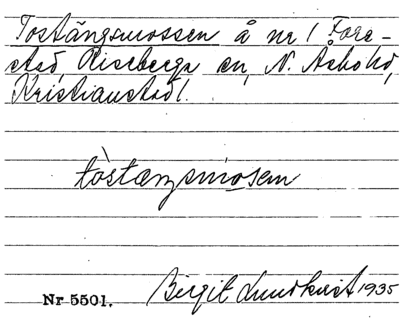 Tostängsmossen å nr 1 Fore-
stad, Riseberga sn, N. Åsbo hd,
Kristianstad l.
tòstæŋsmosen
Nr 5501. Birgit Lundkvist 1935